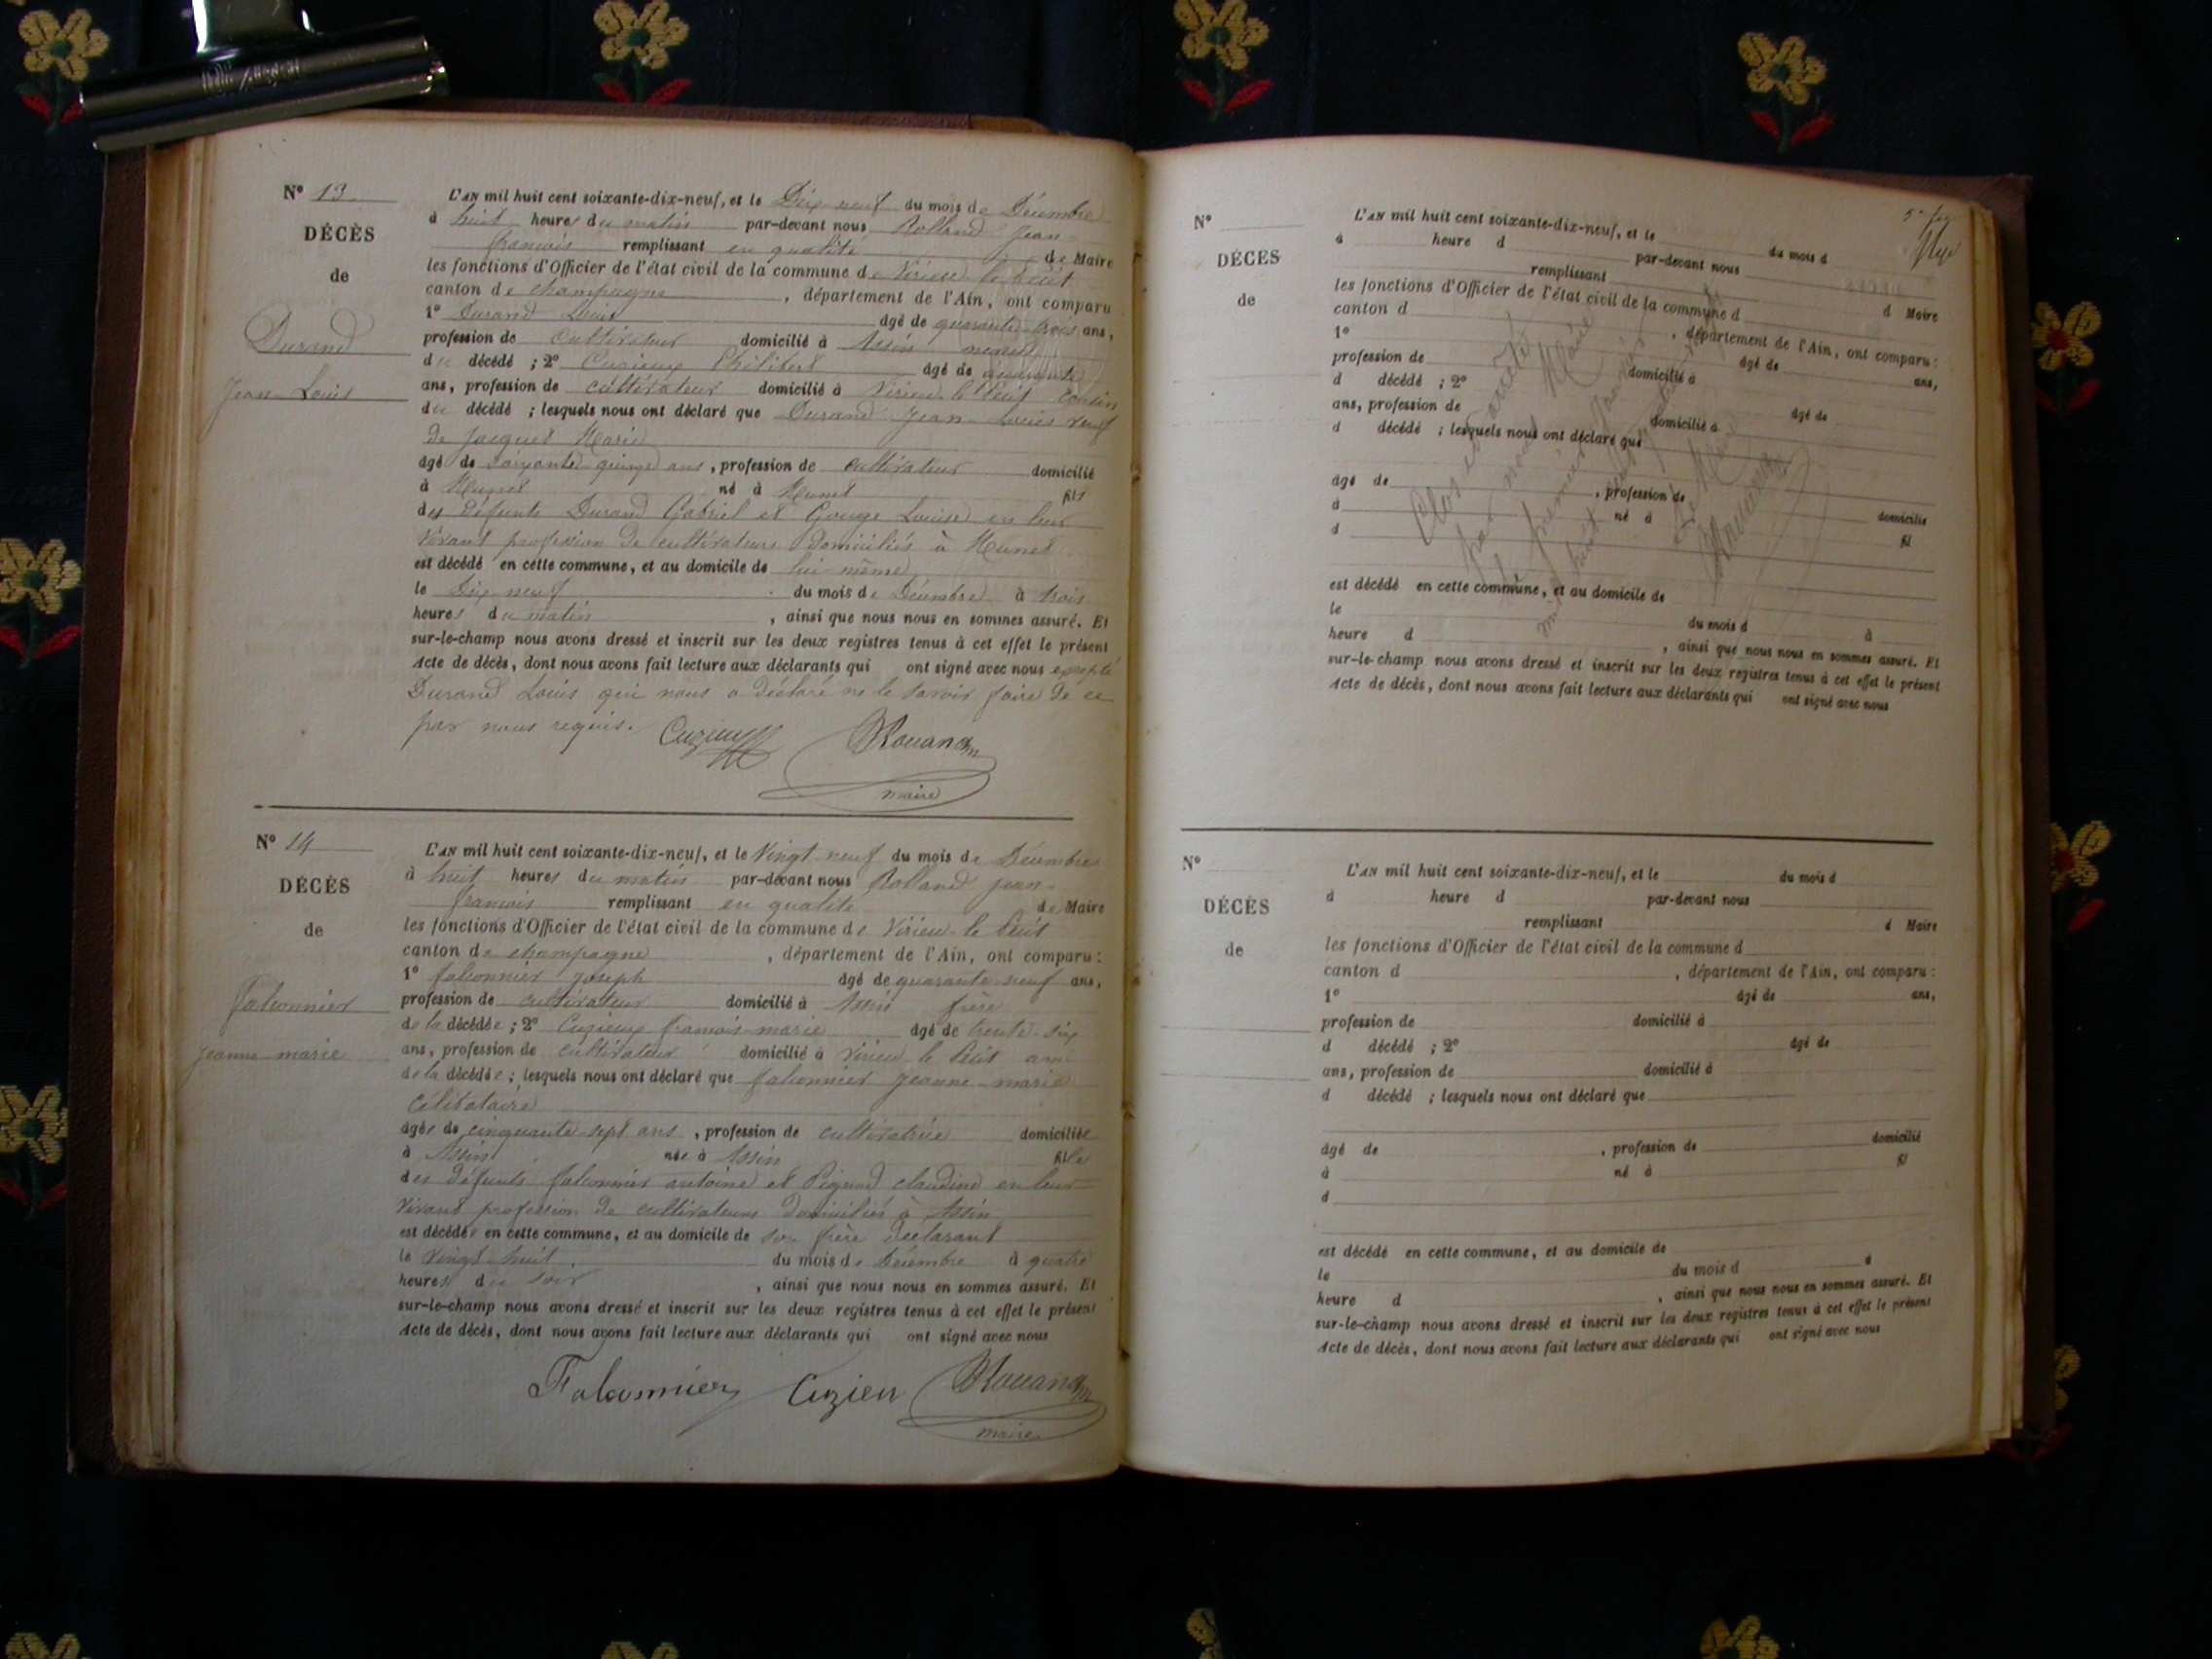 N° 13
DÉCÈS
de
Durand
Jean Louis
L'AN mil huit cent soixante-dix-neuf, et le Dix neuf du mois de Décembre
à huit heures du matin par-devant nous Rolland jean
francois remplissant en qualité de Maire
les fonctions d'Officier de l'état civil de la commune de Virieu le Petit
canton de champagne, département de l'Ain, ont comparu
1° Durand Louis âgé de quarante trois ans,
profession de cultivateur domicilié à Assin neveu
du décédé ; 2° Cuzieux Philibert âgé de quarante
ans, profession de cultivateur domicilié à Virieu le Petit cousin
du décédé ; lesquels nous ont déclaré que Durand Jean Louis veuf
de Jacquet Marie
âgé de soixante quinze ans, profession de cultivateur domicilié
à Munet né à Munet fils
des défunts Durand Gabriel et Gouge Louise en leur
vivant profession de cultivateurs domiciliés à Munet
est décédé en cette commune, et au domicile de lui même
le Dix neuf du mois de Décembre à trois
heures du matin, ainsi que nous nous en sommes assuré. Et
sur-le-champ nous avons dressé et inscrit sur les deux registres tenus à cet effet le présent
Acte de décès, dont nous avons fait lecture aux déclarants qui ont signé avec nous excepté
Durand Louis qui nous a déclaré ne le savoir faire de ce
par nous requis. Cuzieux
maire
N° 14
DÉCÈS
de
falconnier
jeanne marie
L'AN mil huit cent soixante-dix-neuf, et le Vingt neuf du mois de Décembre
à huit heures du matin par-devant nous Rolland jean
francois remplissant en qualité de Maire
les fonctions d'Officier de l'état civil de la commune de Virieu le Petit
canton de champagne, département de l'Ain, ont comparu :
1° falconnier joseph âgé de quarante neuf ans,
profession de cultivateur domicilié à Assin frère
de la décédée ; 2° Cuzieux francois marie âgé de trente six
ans, profession de cultivateur domicilié à Virieu le Petit ami
de la décédée ; lesquels nous ont déclaré que falconnier jeanne marie
célibataire
âgée de cinquante sept ans, profession de cultivatrice domiciliée
à Assin née à Assin fille
des défunts falconnier antoine et Pignod claudine en leur
vivant profession de cultivateurs domiciliés à Assin
est décédée en cette commune, et au domicile de son frère déclarant
le vingt huit du mois de Décembre à quatre
heures du soir, ainsi que nous nous en sommes assuré. Et
sur-le-champ nous avons dressé et inscrit sur les deux registres tenus à cet effet le présent
Acte de décès, dont nous avons fait lecture aux déclarants qui ont signé avec nous
Falconnier Cuzieu
maire
N°
DÉCÈS
de
L'AN mil huit cent soixante-dix-neuf, et le du mois d
à heure d par-devant nous
remplissant d Maire
les fonctions d'Officier de l'état civil de la commune d
canton d, département de l'Ain, ont comparu :
1° âgé de ans,
profession de domicilié à
d décédé ; 2° âgé de
ans, profession de domicilié à
d décédé ; lesquels nous ont déclaré que
âgé de, profession de domicilié
à né à fil
d
est décédé en cette commune, et au domicile de
le du mois d à
heure d, ainsi que nous nous en sommes assuré. Et
sur-le-champ nous avons dressé et inscrit sur les deux registres tenus à cet effet le présent
Acte de décès, dont nous avons fait lecture aux déclarants qui ont signé avec nous
Clos et arrêté
par nous Maire
premier janvier
mil huit cent
Le Maire
N°
DÉCÈS
de
L'AN mil huit cent soixante-dix-neuf, et le du mois d
à heure d par-devant nous
remplissant d Maire
les fonctions d'Officier de l'état civil de la commune d
canton d, département de l'Ain, ont comparu :
1° âgé de ans,
profession de domicilié à
d décédé ; 2° âgé de
ans, profession de domicilié à
d décédé ; lesquels nous ont déclaré que
âgé de, profession de domicilié
à né à fil
d
est décédé en cette commune, et au domicile de
le du mois d à
heure d, ainsi que nous nous en sommes assuré. Et
sur-le-champ nous avons dressé et inscrit sur les deux registres tenus à cet effet le présent
Acte de décès, dont nous avons fait lecture aux déclarants qui ont signé avec nous